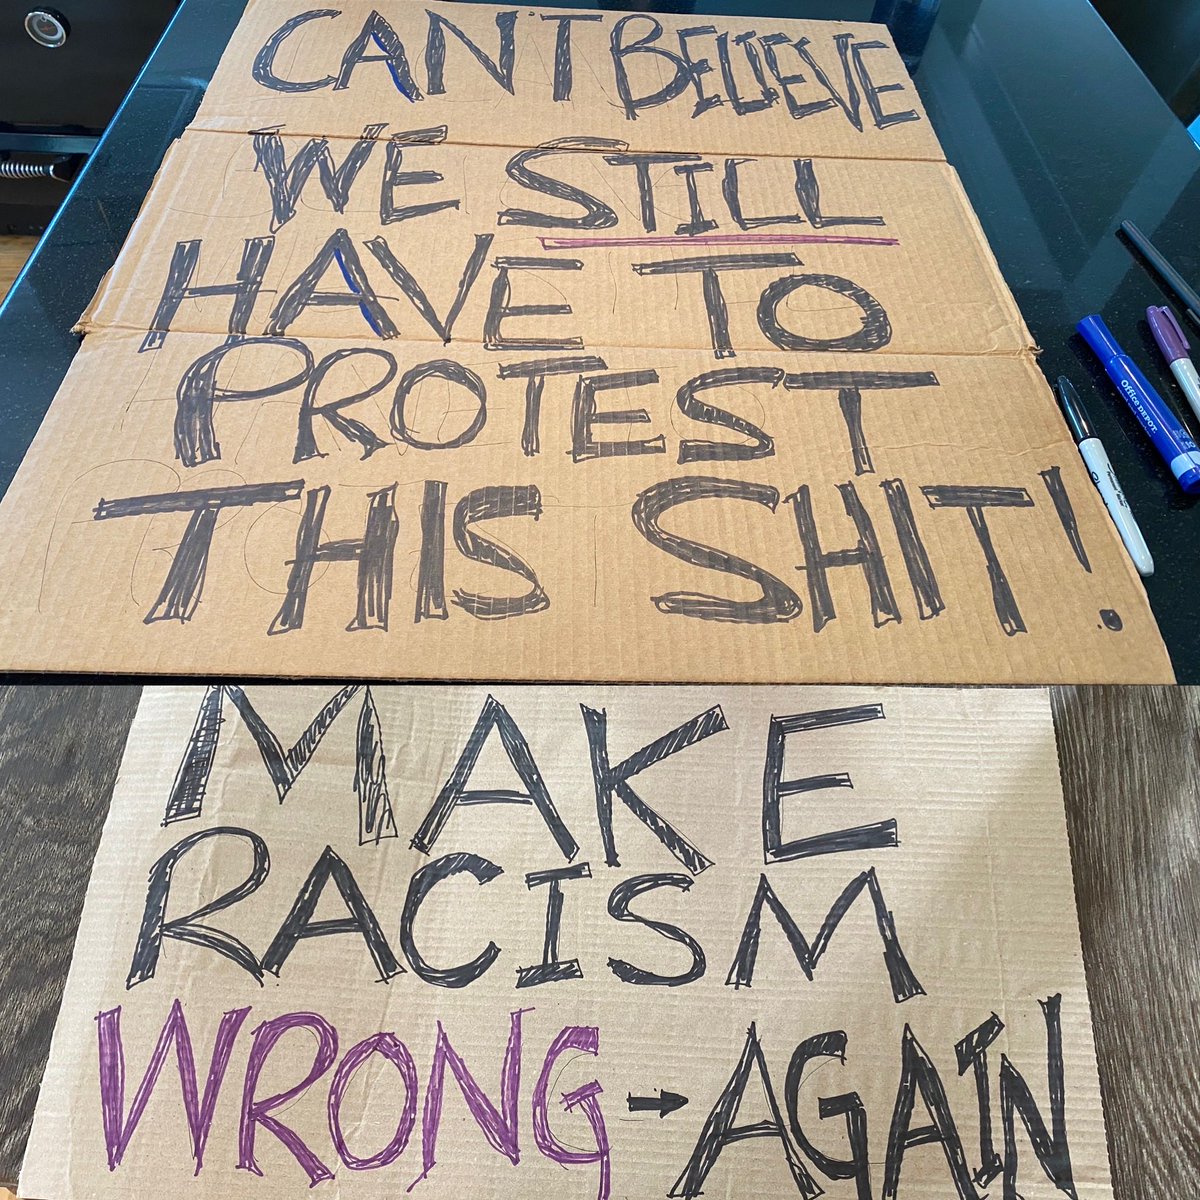 CAN'T BELIEVE
WE STILL
HAVE TO
PROTEST
THIS SHIT!
Office DEPOT
MAKE
RACISM
WRONG → AGAIN